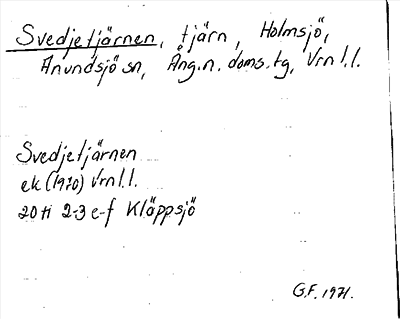 Svedjetjärnen, tjärn, Holmsjö,
Anundsjö sn, Ång.n. doms.tg, Vrn l.l.
Svedjetjärnen
ek (1970) Vrn l.l.
20 H 2-3 e-f Kläppsjö
G.F. 1971.